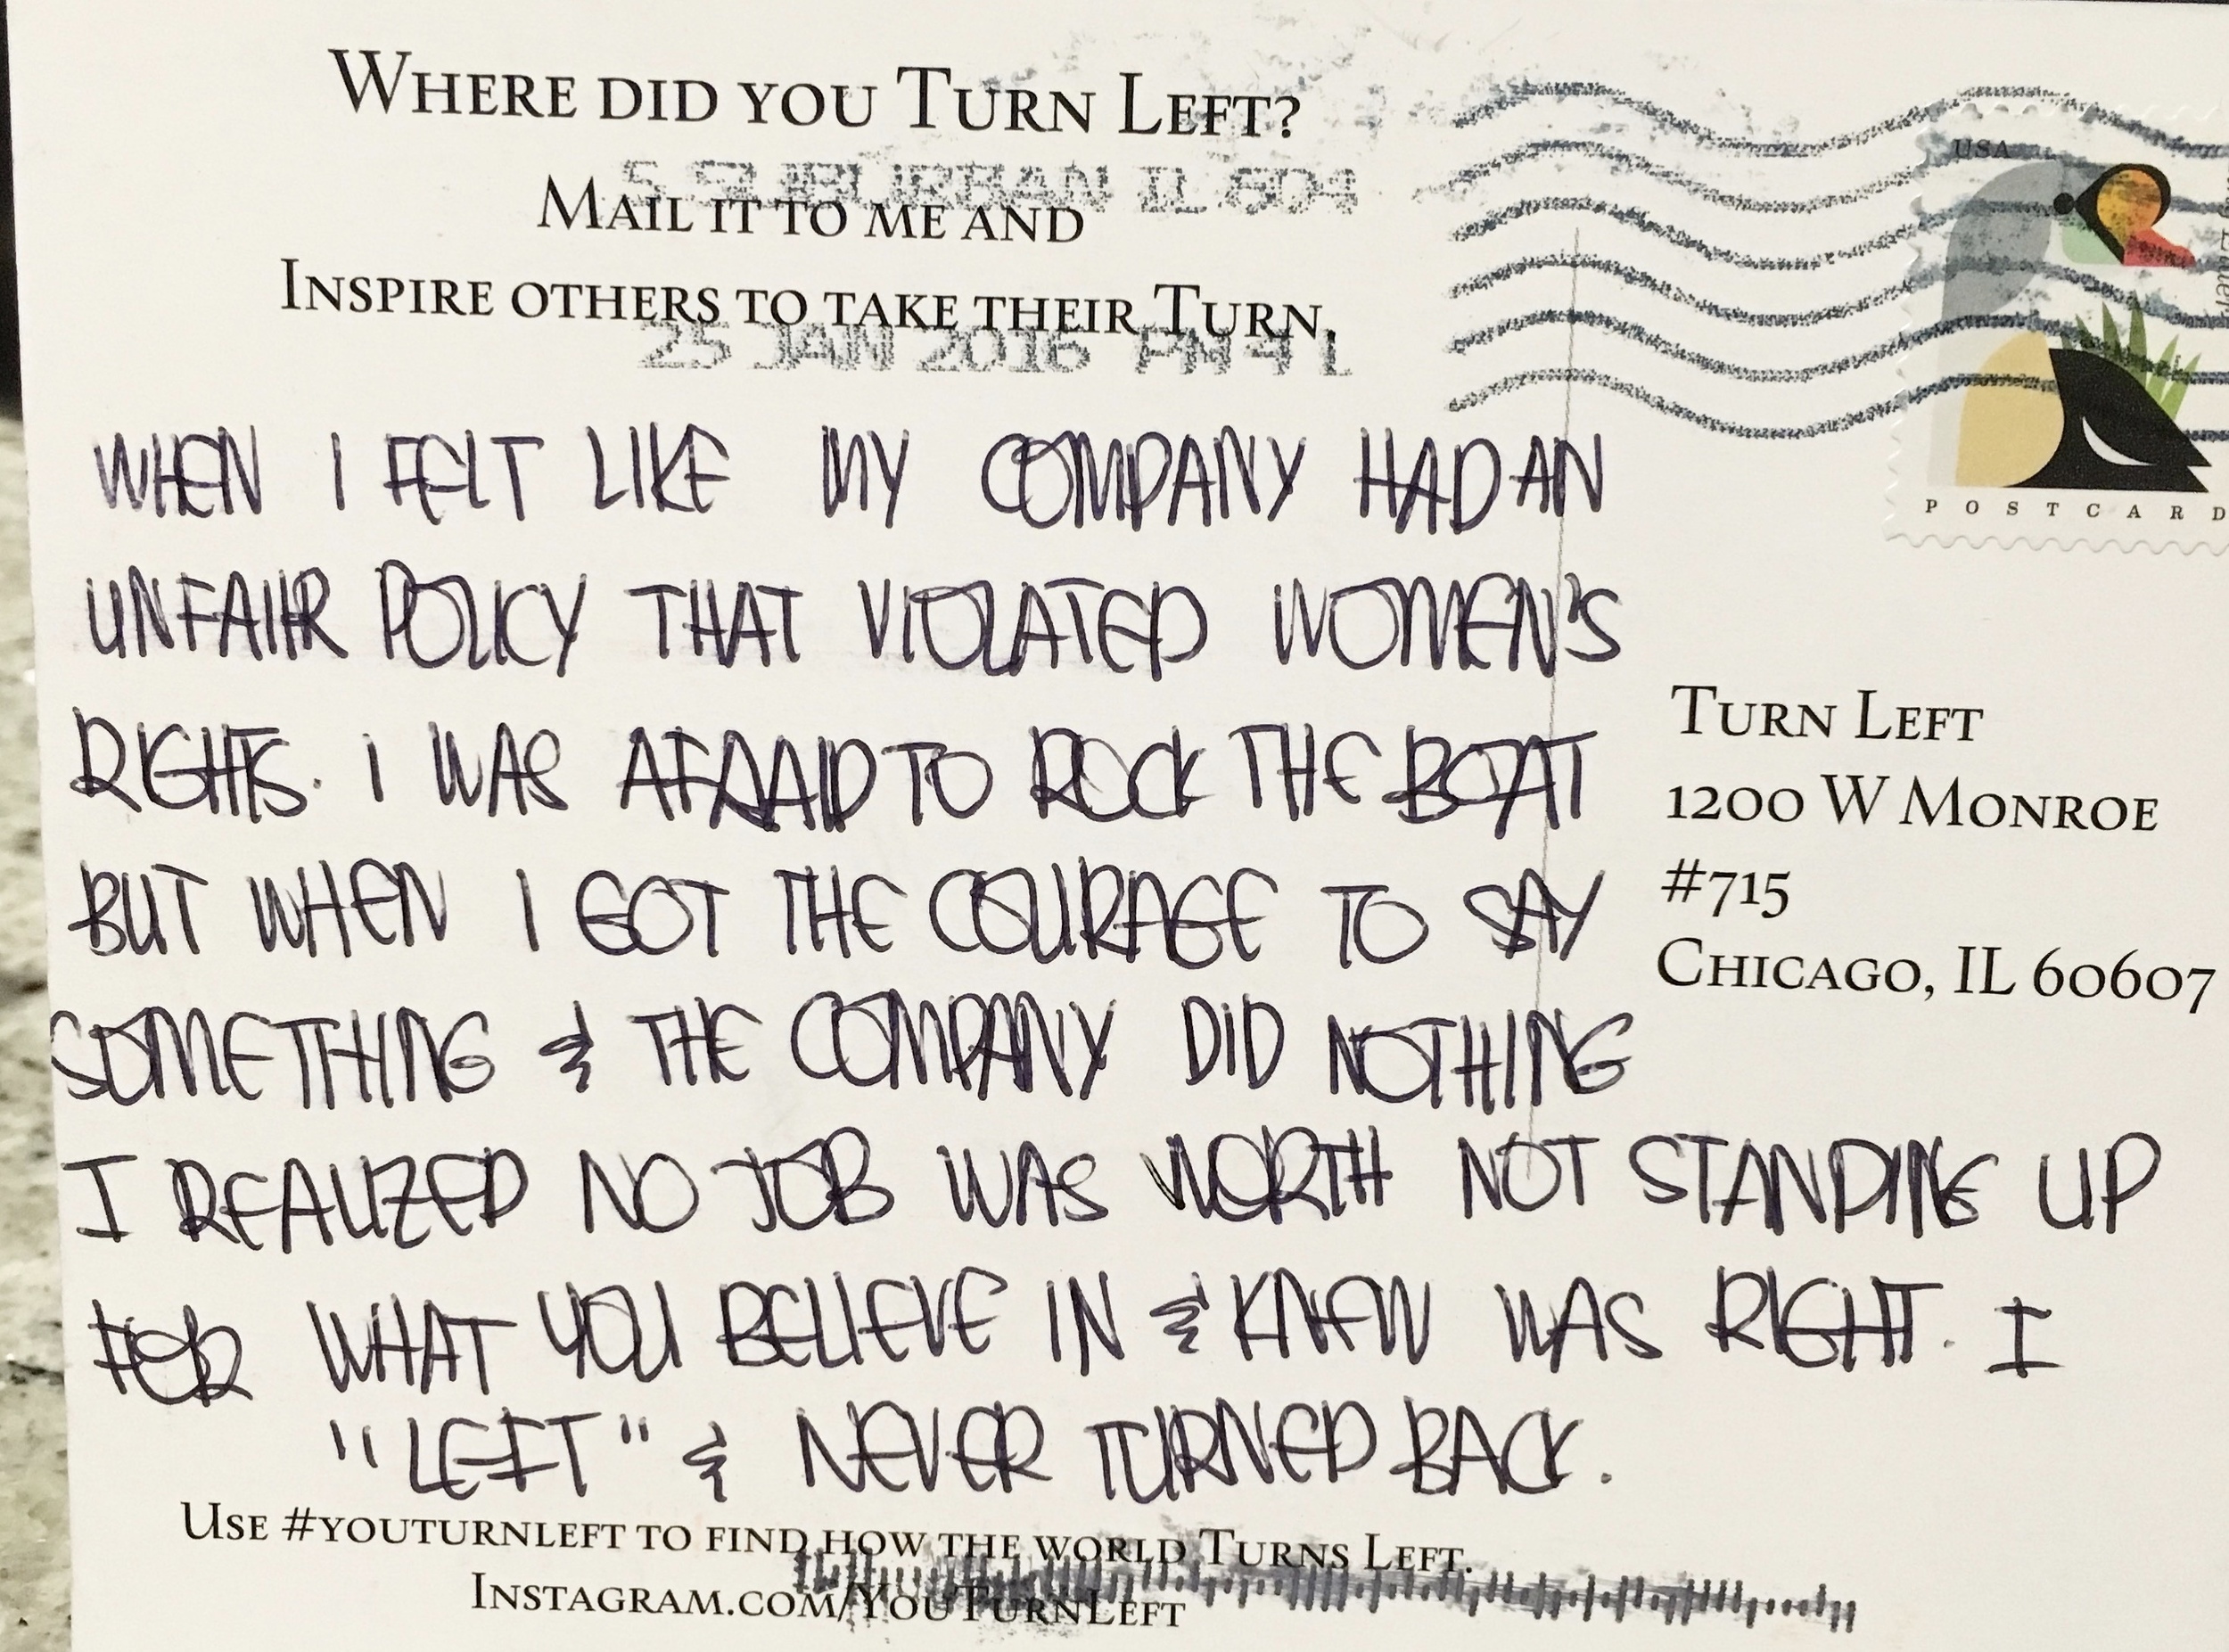 WHERE DID YOU TURN LEFT?
S SUBURBAN IL 604
MAIL IT TO ME AND
INSPIRE OTHERS TO TAKE THEIR TURN.
25 JAN 2016 PM 4 L
USA
POSTCARD
WHEN I FELT LIKE MY COMPANY HAD AN
UNFAIR POLICY THAT VIOLATED WOMEN'S
RIGHTS. I WAS AFRAID TO ROCK THE BOAT
BUT WHEN I GOT THE COURAGE TO SAY
SOMETHING & THE COMPANY DID NOTHING
I REALIZED NO JOB WAS WORTH NOT STANDING UP
FOR WHAT YOU BELIEVE IN & KNEW WAS RIGHT. I
"LEFT" & NEVER TURNED BACK.
TURN LEFT
1200 W MONROE
#715
CHICAGO, IL 60607
USE #YOUTURNLEFT TO FIND HOW THE WORLD TURNS LEFT.
INSTAGRAM.COM/YOUTURNLEFT